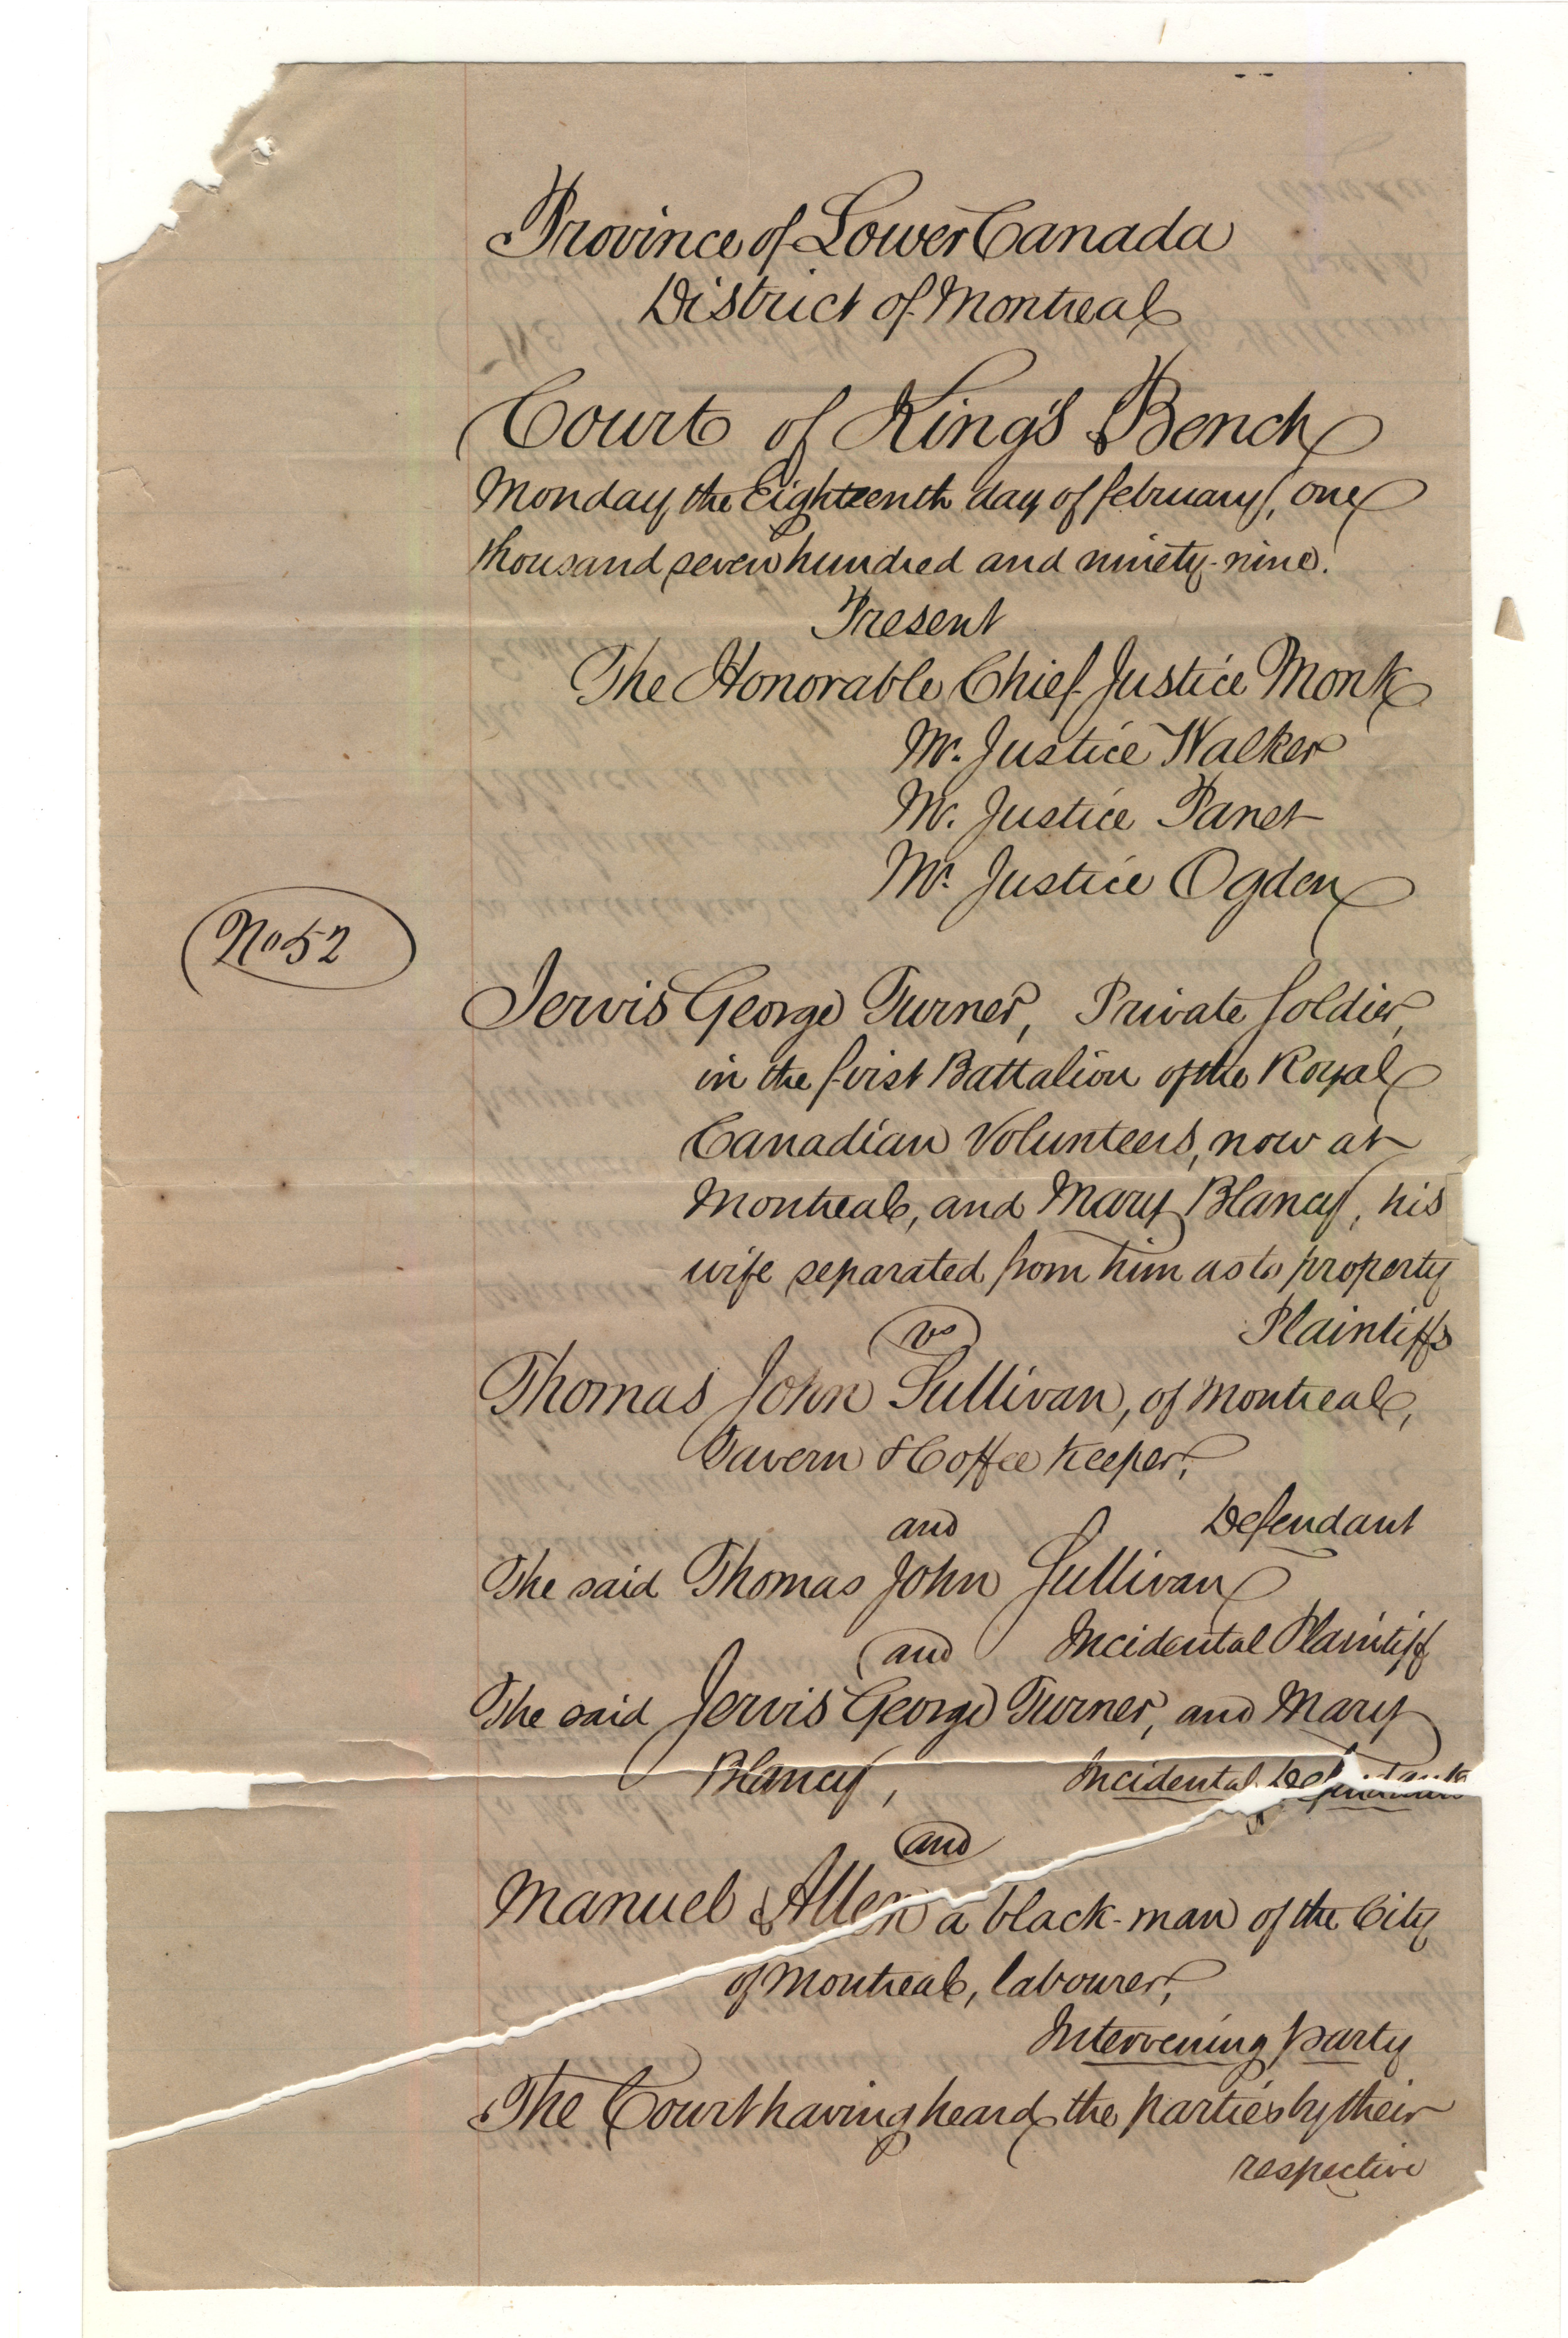 Province of Lower Canada
District of Montreal
Court of King's Bench
Monday the Eighteenth day of February, one
thousand seven hundred and ninety-nine.
Present
The Honorable Chief Justice Monk
Mr. Justice Walker
Mr. Justice Panet
Mr. Justice Ogden
No 52
Jervis George Turner, Private Soldier,
in the first Battalion of the Royal
Canadian Volunteers, now at
Montreal, and Mary Blaney, his
wife separated from him as to property
Plaintiffs
vs
Thomas John Sullivan, of Montreal,
Tavern & Coffee Keeper,
and Defendant
The said Thomas John Sullivan
and Incidental Plaintiff
The said Jervis George Turner, and Mary
Blaney, Incidental Defendants
and
Manuel Allen a black-man of the City
of Montreal, labourer,
Intervening party
The Court having heard the parties by their
respective